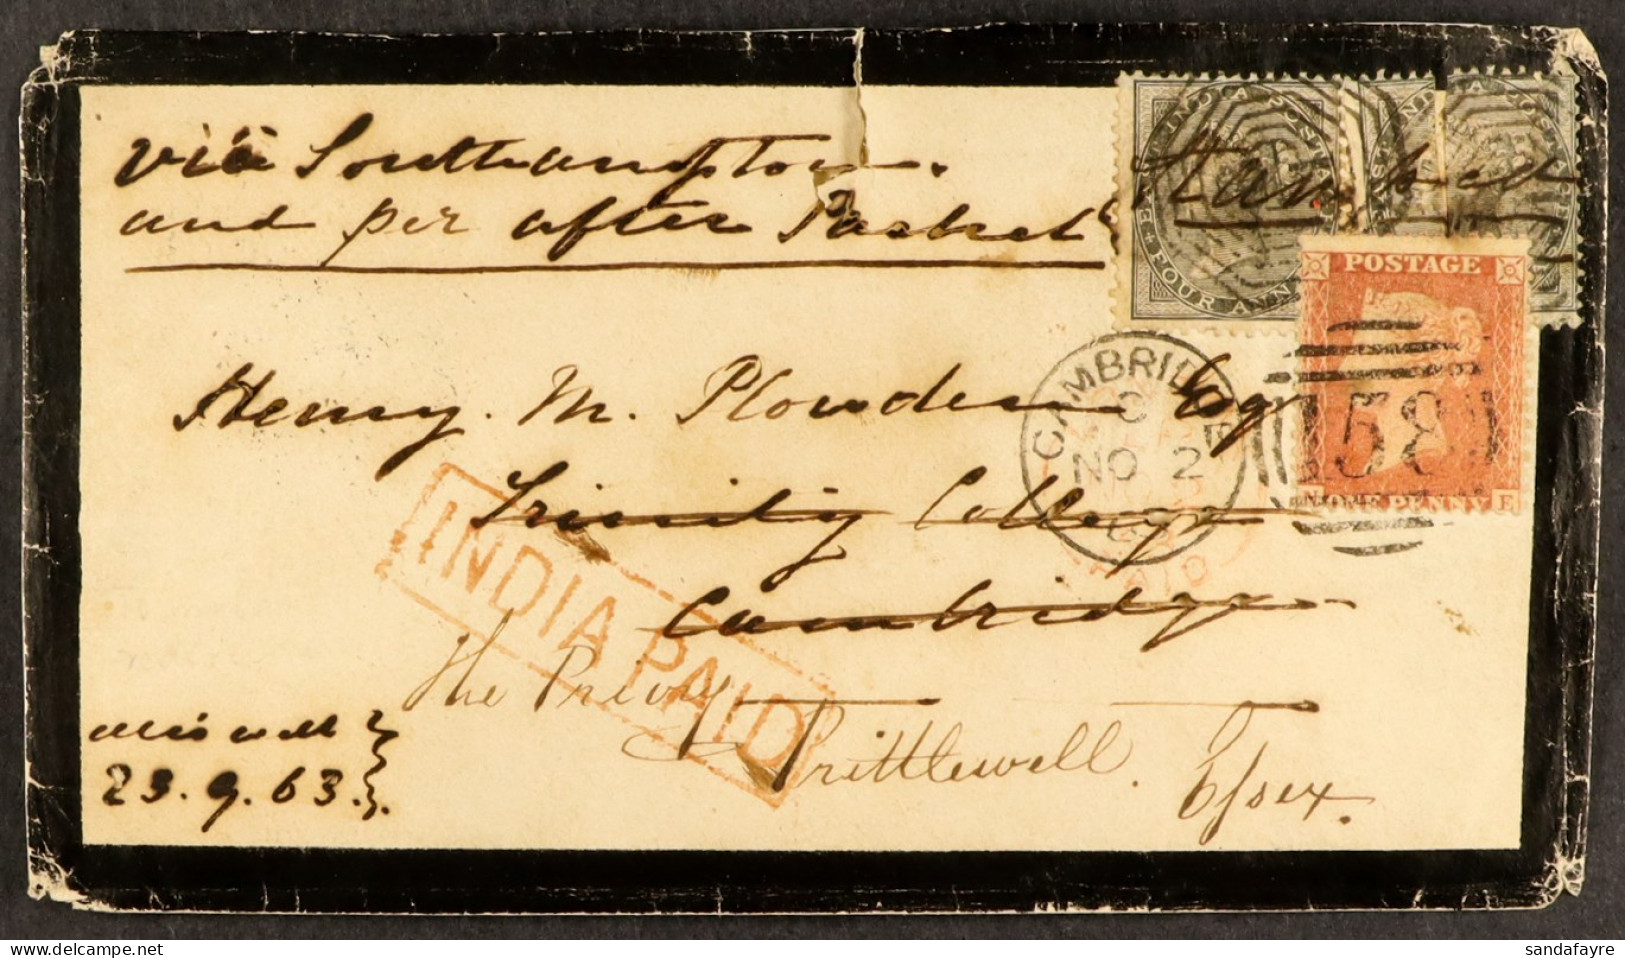 viâ Southampton.
and per after Packet
Stamped
INDIA POSTAGE
FOUR ANNAS
POSTAGE
ONE PENNY
E
58
CAMBRIDGE
C
NO 2
63
PAID
Henry. M. Plowden Esq
Trinity College
Cambridge
INDIA PAID
The Priory
Prittlewell.
Essex.
23.9.63.
sandafayre